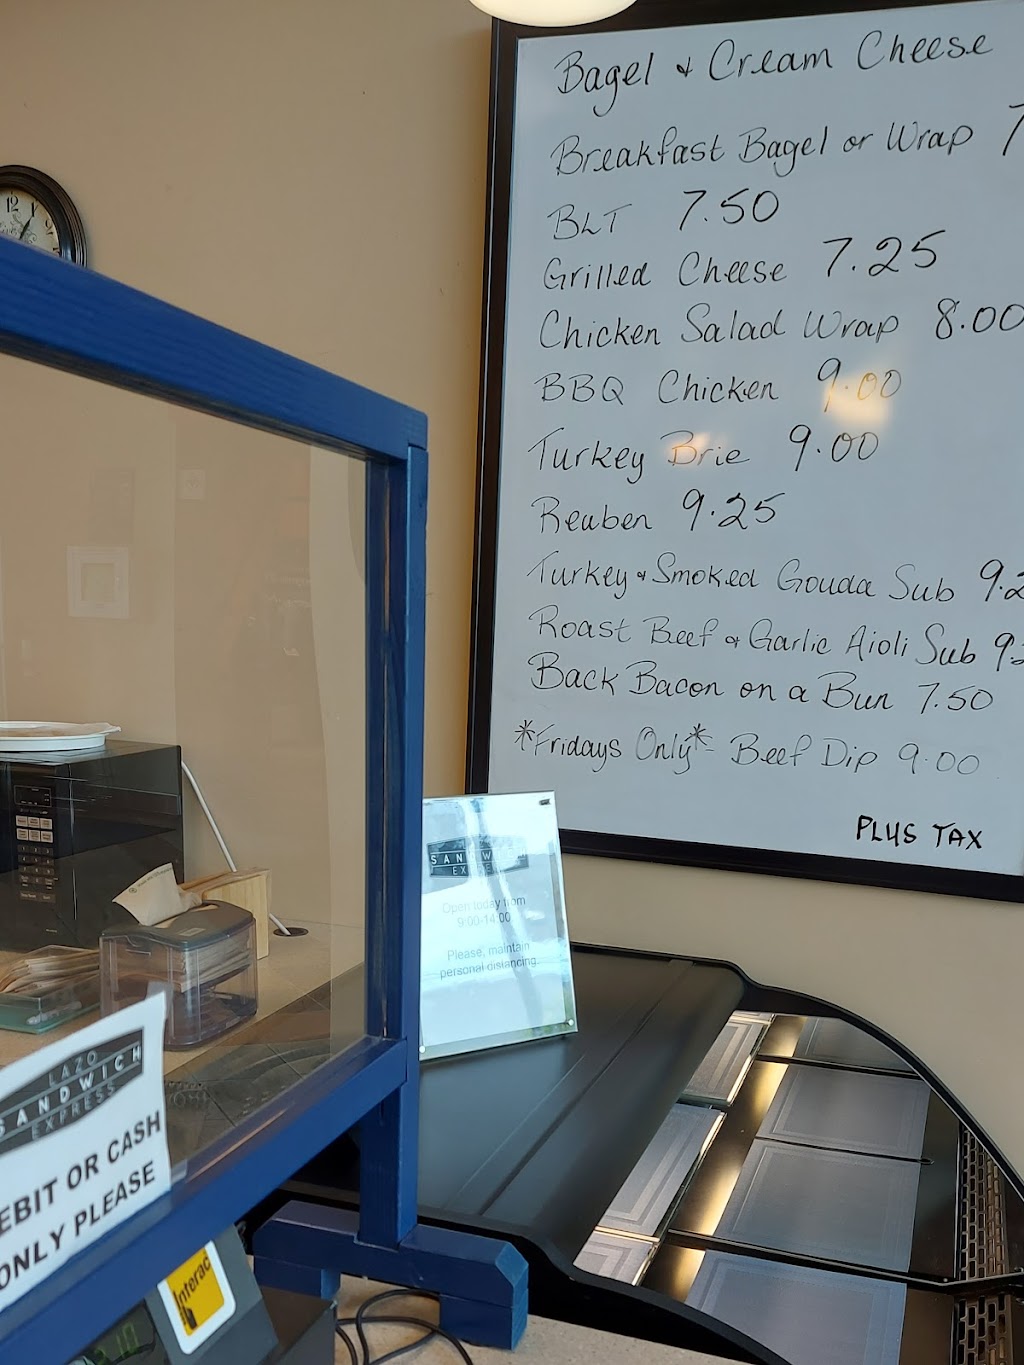 Bagel & Cream Cheese
Breakfast Bagel or Wrap 7
BLT 7.50
Grilled Cheese 7.25
Chicken Salad Wrap 8.00
BBQ Chicken 9.00
Turkey Brie 9.00
Reuben 9.25
Turkey & Smoked Gouda Sub 9.2
Roast Beef & Garlic Aioli Sub 9.2
Back Bacon on a Bun 7.50
*Fridays Only* - Beef Dip 9.00
PLUS TAX
12
SANDWICH
Open today from
9:00-14:00
Please, maintain
personal distancing.
LAZO
SANDWICH
EXPRESS
EBIT OR CASH
ONLY PLEASE
Interac